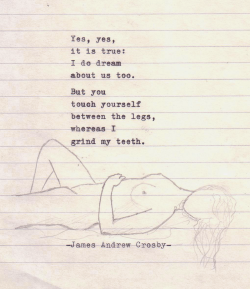 Yes, yes,
it is true:
I do dream
about us too.
But you
touch yourself
between the legs,
whereas I
grind my teeth.
-James Andrew Crosby-